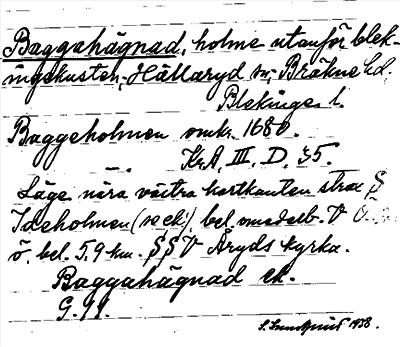 Baggahägnad, holme utanför blek-
ingekusten, Hällaryd sn, Bräkne hd,
Blekinge l.
Baggeholmen omkr. 1680.
KrA, III. D, 35.
Läge nära västra kartkanten strax S
Ideholmen (se ek), bel. omedelb. V
ö. bel. 5,9 km. SSV Åryds kyrka.
Baggahägnad ek.
G. 91.
S. Sundquist 1938.